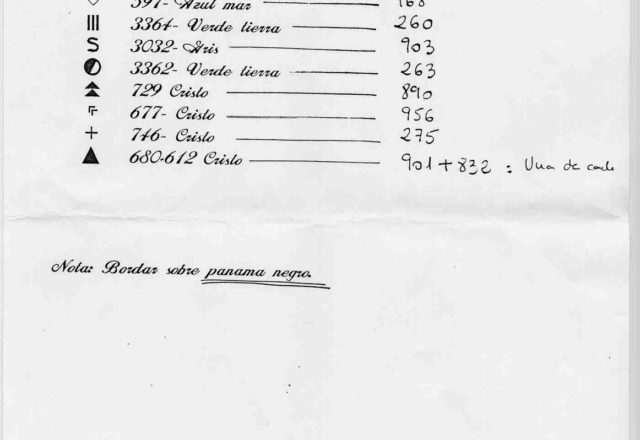 597- Azul mar 168
3364- Verde tierra 260
S 3032- Gris 903
3362- Verde tierra 263
729 Cristo 890
677- Cristo 956
+ 746- Cristo 275
680-612 Cristo 901+832 : Una de cada
Nota: Bordar sobre panama negro.